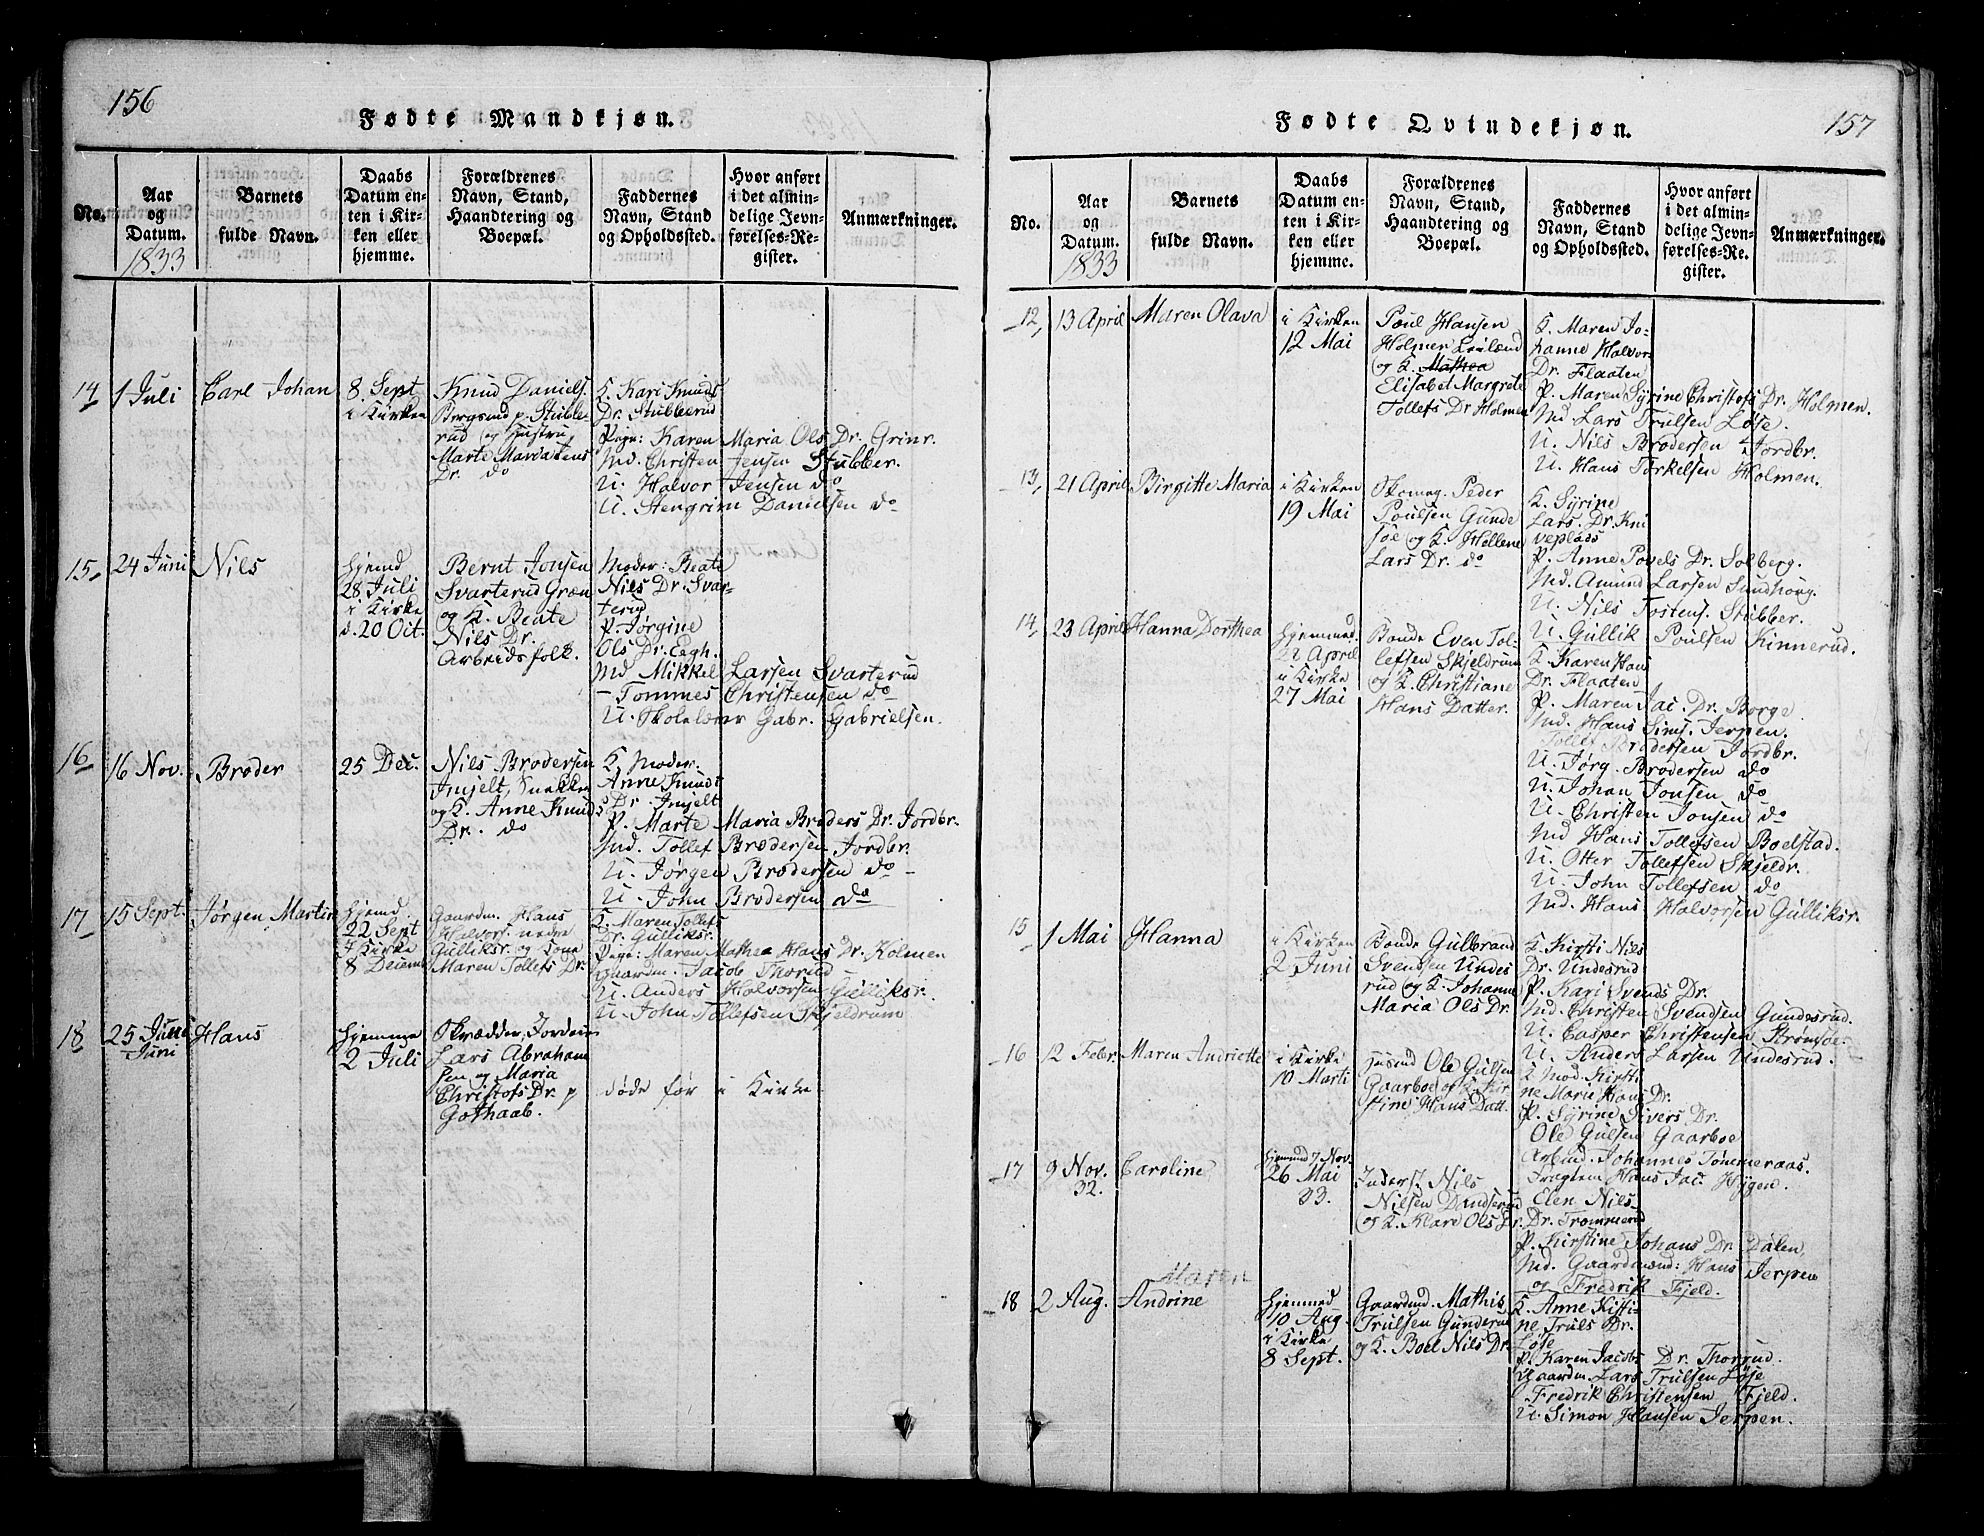 156
Fødte Mandkjøn.
No.
Aar og Datum.
1833
Barnets fulde Navn.
Daabs Datum enten i Kirken eller hjemme.
Forældrenes Navn, Stand, Haandtering og Boepæl.
Faddernes Navn, Stand og Opholdssted.
Hvor anført i det almindelige Jevnførelses-Register.
Anmærkninger.
14
1 Juli
Carl Johan
8 Sept
i Kirken
Knud Daniels.
Bergsund p. Stubberud og Hustru
Marte Maria Jens
Dr. do
K. Kari Knuds
Dr. Stubberud
Pige: Karen Maria Ols Dr. Grinr.
Md. Christen Jensen Stubber.
U. Halvor Jensen do
U. Stengrim Danielsen do
15,
24 Juni
Nils
hjemd
28 Juli
i Kirke
d. 20 Oct.
Bernt Jonsen
Svarterud Græn
og K. Beate
Nils Dr.
Arbeidsfolk.
Moder: Beate
Nils Dr. Svarterud
P. Jørgine
Ols Dr. Eegh.
Md Mikkel Larsen Svarterud
— Tommes Christensen do
U. Skolelærer Gabr. Gabrielsen.
16
16 Nov.
Broder
25 Dec.
Nils Brodersen
Imjelt, Snekker
og K. Anne Knuds
Dr. do
K. Moder.
Anne Knuds
Dr. Imjelt
P. Marte Maria Broders Dr. Jordbr.
Md. Tollef Brodersen Jordbr.
U. Jørgen Brodersen do
U. John Brodersen do
17
15 Sept.
Jørgen Martin
hjemd
22 Sept
i Kirke
8 Decemb
Gaardm. Hans
Halvors. nedre
Gulliksr. og Kone
Maren Tollefs Dr.
K. Maren Tollefs
Dr. Gulliksr.
Pige: Maren Mathea Hans Dr. Holmen
gaardm. Jacob Thorud
U. Anders Halvorsen Gulliksr.
U. John Tollefsen Skjeldrum
18
25 Juni
Juni
Hans
hjemme
2 Juli
Skrædder, Jordein
Lars Abrahamsen og Maria
Christofs Dr. p
Gothaab.
døde før i Kirke
157
Fødte Qvindekjøn.
No.
Aar og Datum.
1833
Barnets fulde Navn.
Daabs Datum enten i Kirken eller hjemme.
Forældrenes Navn, Stand, Haandtering og Boepæl.
Faddernes Navn, Stand og Opholdssted.
Hvor anført i det almindelige Jevnførelses-Register.
Anmærkninger.
12,
13 April
Maren Olava
i Kirken
12 Mai
Poul Hansen
Holmen Leilænd
og K. Mathea
Elisabet Margrete
Tollefs Dr Holmen
K. Maren Johanne Halvors
Dr. Flaaten
P. Maren Syrine Christofs Dr. Holmen.
Md Lars Trulsen Løse.
U. Nils Brodersen Jordbr.
U. Hans Torkelsen Holmen.
13,
21 April
Birgitte Maria
i Kirken
19 Mai
Skomag. Peder
Poulsen Gundesoe og K. Hellene
Lars Dr. do
K. Syrine
Lars. Dr. Kniveplads
P. Anne Povels Dr. Solberg.
Md. Amund Larsen Sundhoug.
U. Nils Tostens. Stibber.
U. Gullik Poulsen Kinnerud.
14,
23 April
Hanna Dorthea
hjemmed.
28 April
i Kirke
27 Mai
Bonde Even Tollefsen Skjeldrum
og K. Christiane
Hans Datter.
K. Karen Hans
Dr. Flaaten
P. Maren Jac. Dr. Borge
Md. Hans Sims. Jerpen.
Tollef Brodersen Jordbr.
U. Jørg. Brodersen do
U. Johan Jonsen do
U. Christen Jonsen do
Md Hans Tollefsen Boelstad.
U. Otter Tollefsen Skjeldr.
U. John Tollefsen do
Md. Hans Halvorsen Gulliksr.
15
1 Mai
Hanna
i Kirken
2 Juni
Bonde Gulbrand
Svendsen Undesrud og K. Johanne
Maria Ols Dr.
K. Kirsti Nils
Dr. Undesrud
P. Kari Svends Dr.
Md. Christen Svendsen Gundesrud.
U. Casper Christensen Strømsøe.
U. Anders Larsen Undesrud.
16
12 Febr.
Maren Andriette
i Kirke
10 Marti
Huusmd Ole Gulsen
Gaarboe og K. Kirstine Hans Datt.
K. Mod. Kirstine Marie Hans Dr.
P. Syrine Sivers Dr.
Ole Gulsen Gaarboe
Arbmd. Johannes Tømmeraas.
Fragtem Hans Jac. Hygen.
17
9 Nov.
32.
Caroline
hjemmed 7 Nov.
26 Mai
33.
Inderst Nils
Nilsen Dandserud
og K. Klare Ols Dr.
Elen Nils
Dr. Trommerud
P. Kirstine Johans Dr. Dalen,
Md. Gaardmænd: Hans Jerpen
og Fredrik Fjeld.
18
2 Aug.
Maren
Andrine
hjemmed
10 Aug.
i Kirke
8 Sept.
Gaardmd. Mathis
Trulsen Gunderud
og K. Boel Nils Dr.
K. Anne Kistine Truls Dr.
Løse
P. Karen Jacobs Dr. Thorrud.
Gaardm. Lars Trulsen Løse
Fredrik Christensen Fjeld.
U. Simon Hansen Jerpen.